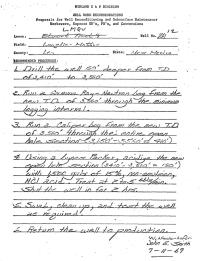 MIDLAND E & P DIVISION
WELL WORK RECOMMENDATIONS
Proposals for Well Reconditioning and Subsurface Maintenance
Workovers, Exposed OH's, PB's, and Conversions
LMGSU
Lease:
Well No. 12
Field: Langlie-Mattix
County: Lea State: New Mexico
RECOMMENDED PROCEDURE:
1. Drill the well 50' deeper from TD
of 3,510' to 3,560'
2. Run a Gamma Ray-Neutron log from the
new TD of 3,560' through the minimum
logging interval.
3. Run a Caliper Log from the new TD
of 3,560' through the entire open
hole section
4. Using a Lynes Packer, acidize the new
open hole section
with 1500 gals of 15% non-emulsion,
HCl acid. Treat at 2 to 5
Shut the well in for 2 hrs.
5. Swab, clean up, and treat the well
as required.
6. Return the well to production.
John E. Smith
7-11-69